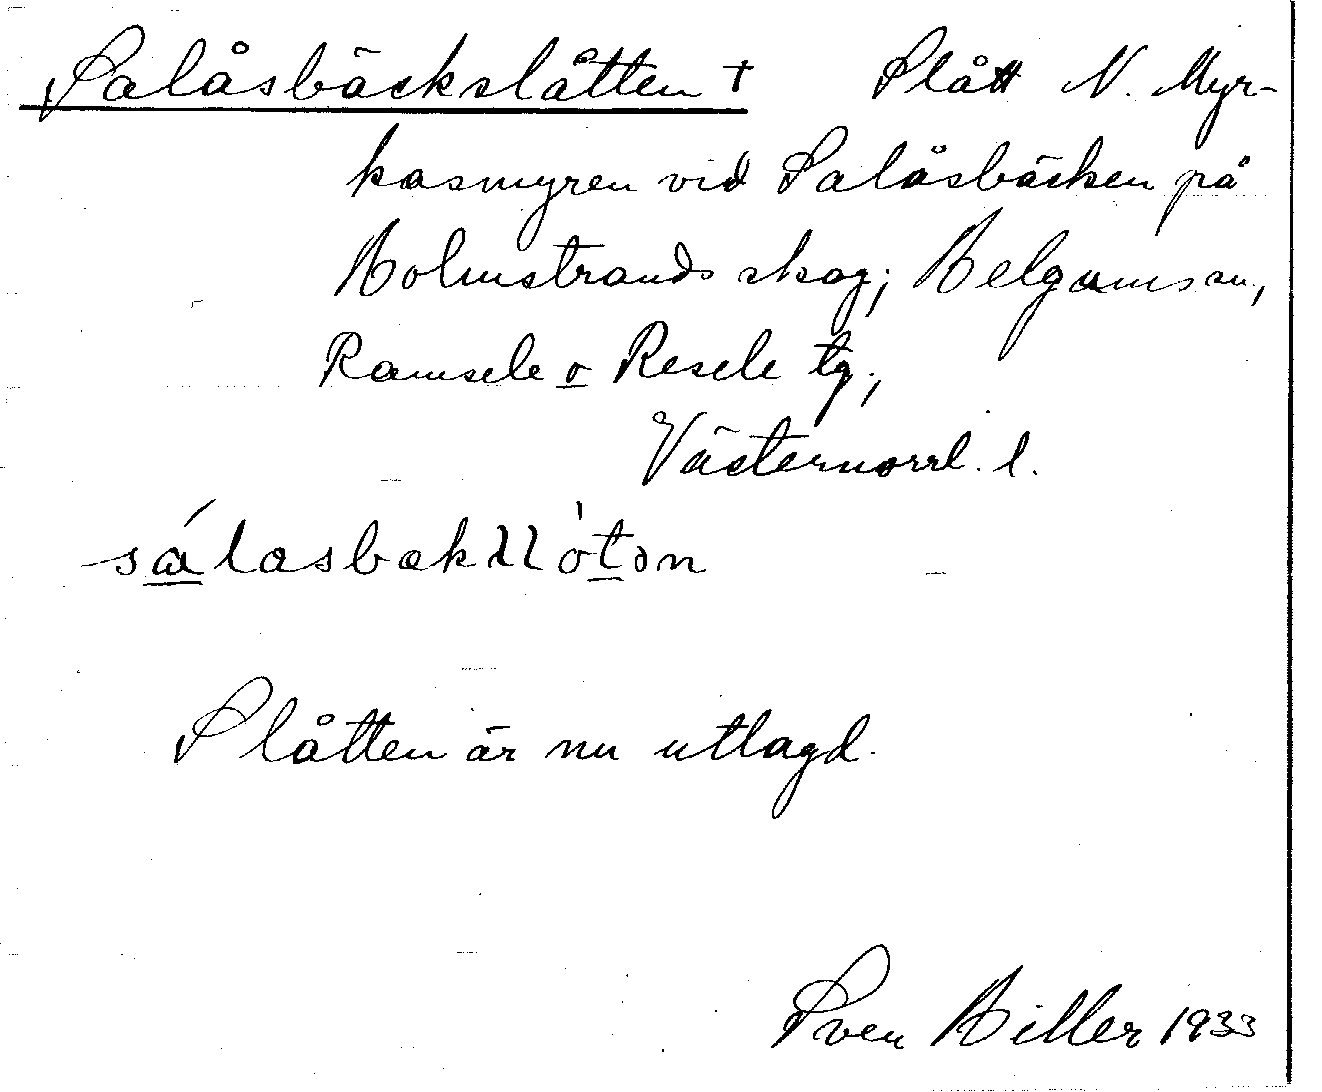 Salåsbäckslåtten † Slått N. Myr-
kasmyren vid Salåsbäcken på
Holmstrands skog; Helgums sn,
Ramsele o Resele tg,
Västernorrl. l.
Slåtten är nu utlagd.
Sven Hiller 1933